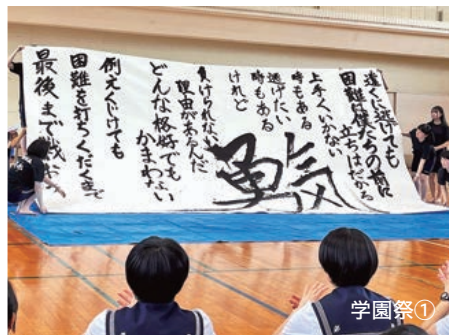 遠くに逃げても
困難は僕たちの前に
立ちはだかる
上手くいかない
時もある
逃げたい
時もある
けれど
負けられない
理由があるんだ
どんな格好でも
かまわない
例えくじけても
困難を打ちくだくまで
最後まで戦
勇気
学園祭①